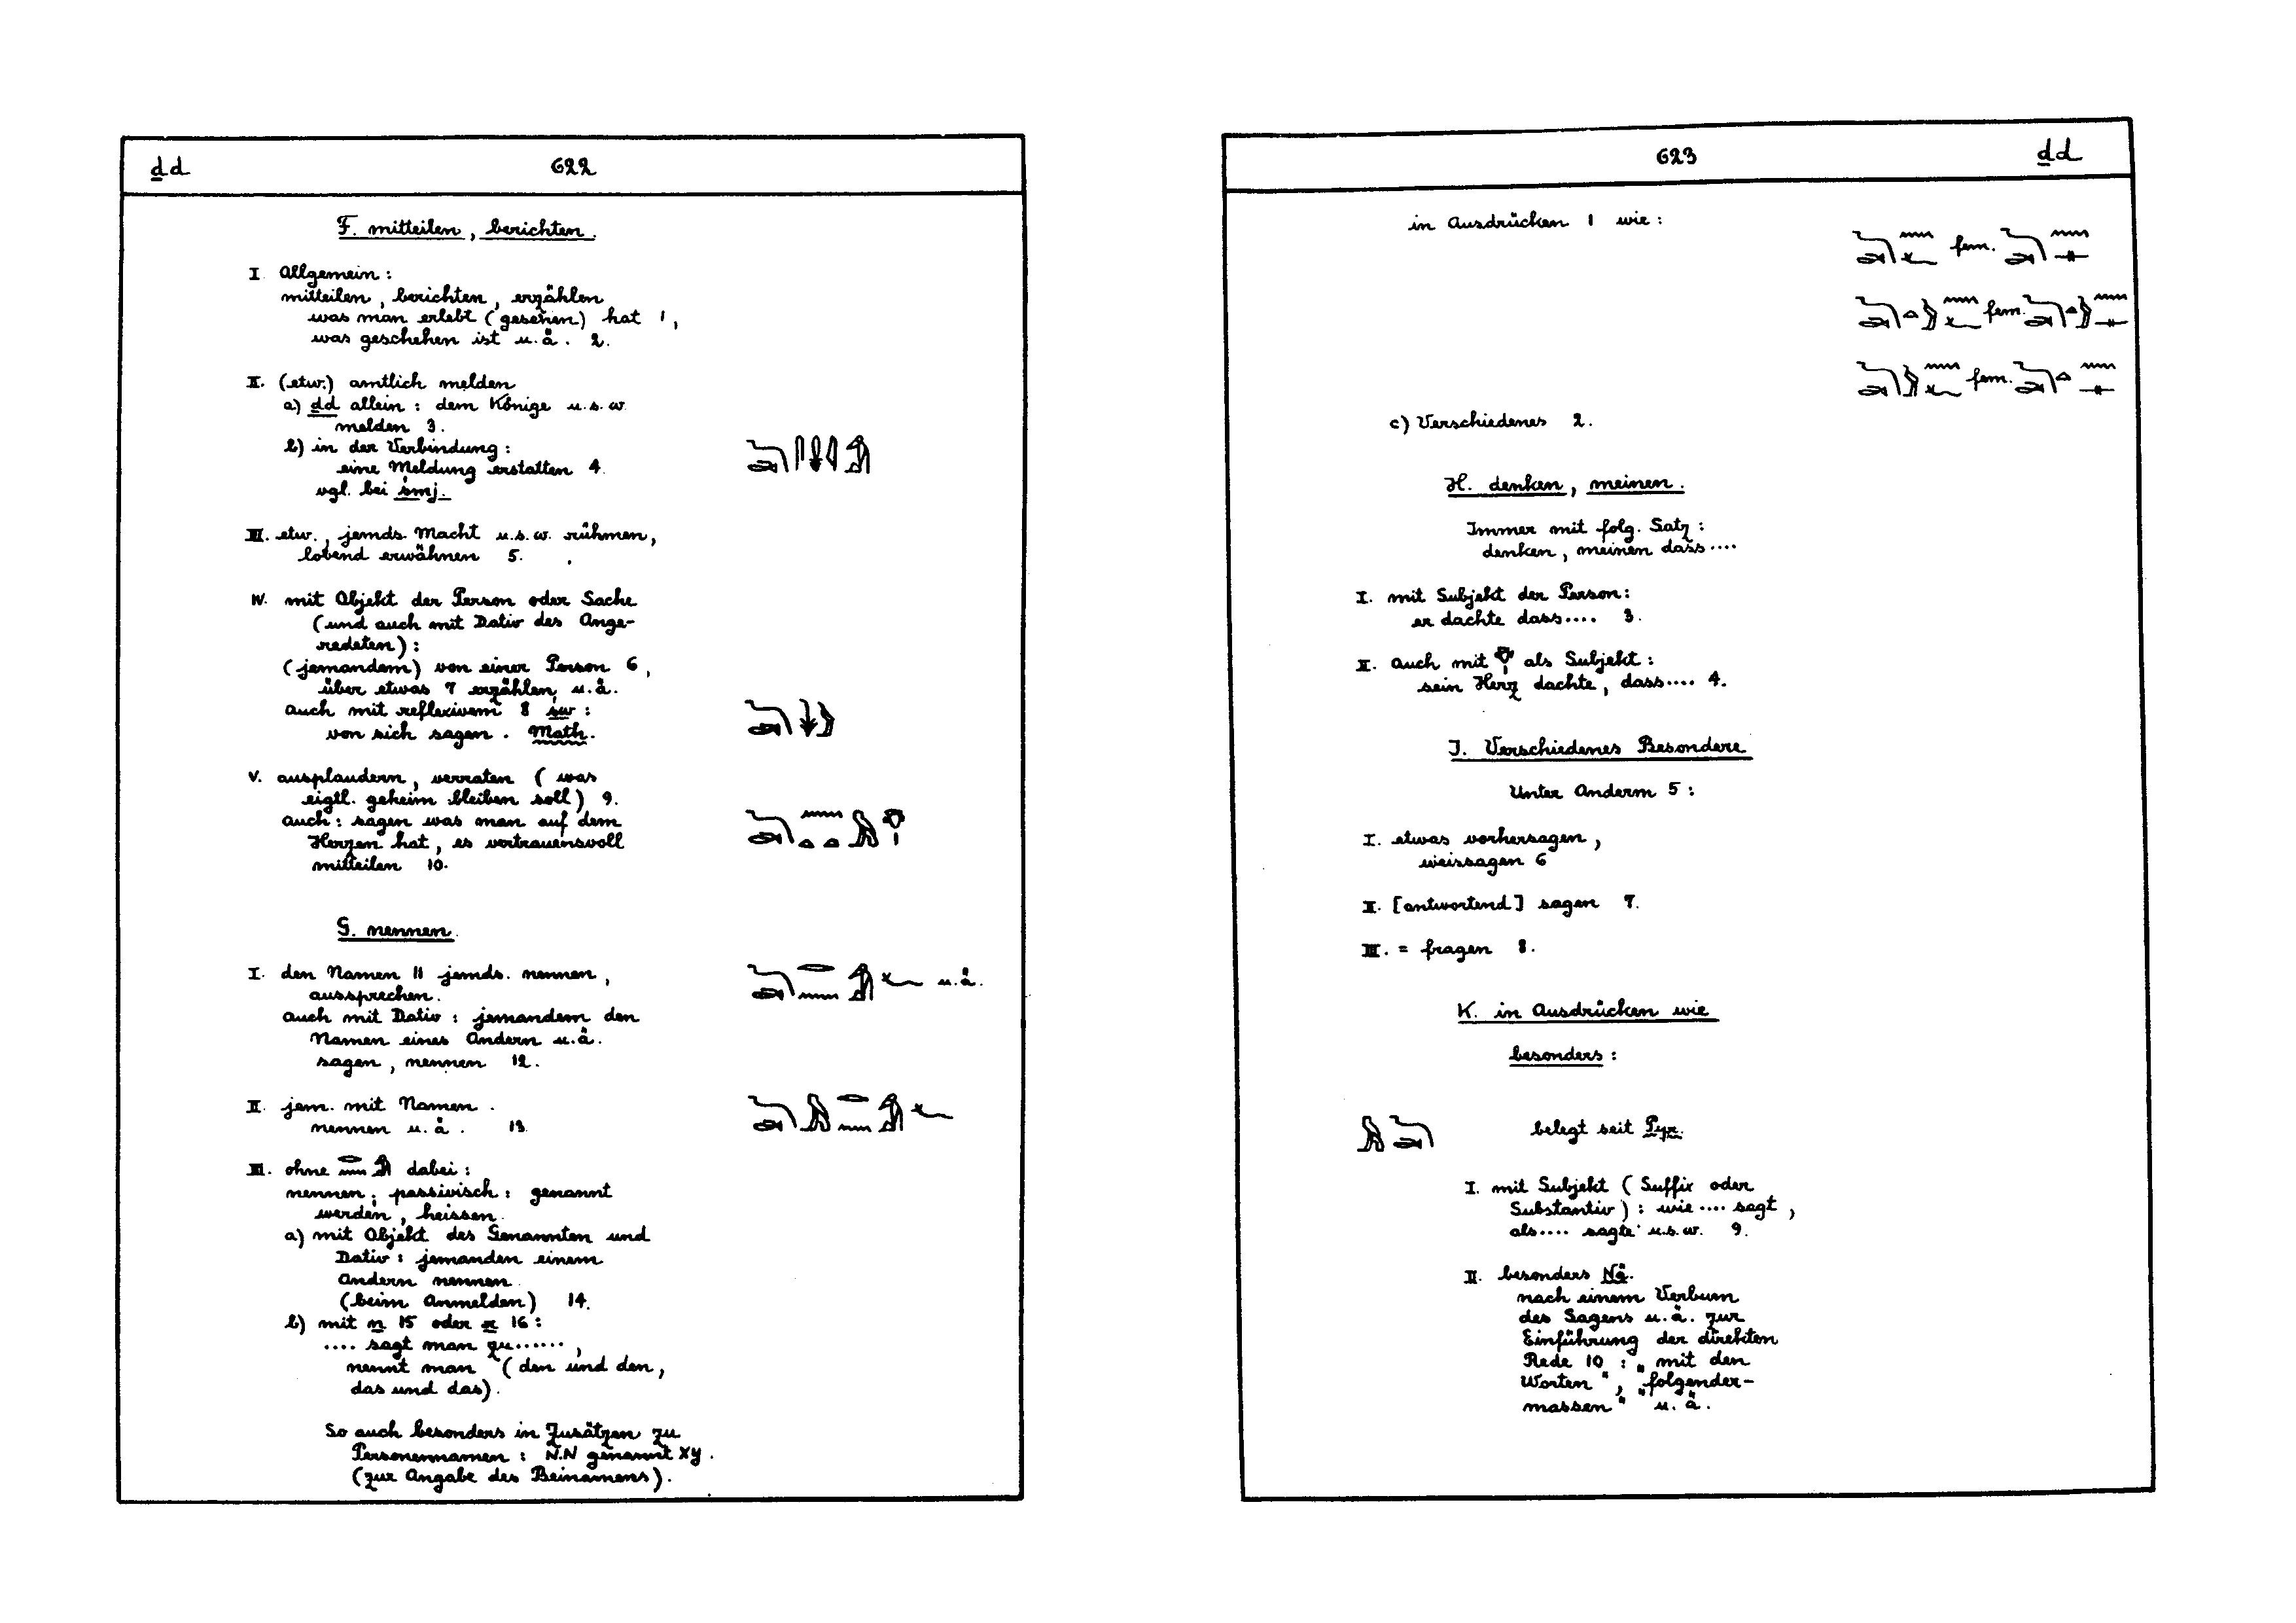 ḏd 622
F. mitteilen, berichten.
I. Allgemein:
mitteilen, berichten, erzählen
was man erlebt (gesehen) hat 1,
was geschehen ist u.ä. 2.
II. (etw.) amtlich melden
a) ḏd allein: dem Könige u.s.w.
melden 3.
b) in der Verbindung:
eine Meldung erstatten 4.
vgl. bei śmj.
III. etw., jemds. Macht u.s.w. rühmen,
lobend erwähnen 5.
IV. mit Objekt der Person oder Sache
(und auch mit Dativ des Ange-
redeten):
(jemandem) von einer Person 6,
über etwas 7 erzählen, u.ä.
auch mit reflexivem 8 św:
von sich sagen. Math.
V. ausplaudern, verraten (was
eigtl. geheim bleiben soll) 9.
auch: sagen was man auf dem
Herzen hat, es vertrauensvoll
mitteilen 10.
G. nennen.
I. den Namen 11 jemds. nennen,
aussprechen. u.ä.
auch mit Dativ: jemandem den
Namen eines Andern u.ä.
sagen, nennen 12.
II. jem. mit Namen
nennen u.ä. 13
III. ohne dabei:
nennen; passivisch: genannt
werden, heissen
a) mit Objekt des Genannten und
Dativ: jemanden einem
Andern nennen
(beim Anmelden) 14.
b) mit n 15 oder r 16:
.... sagt man zu......,
nennt man (den und den,
das und das).
So auch besonders in Zusätzen zu
Personennamen: N.N genannt XY.
(zur Angabe des Beinamens).
623 ḏd
in Ausdrücken 1 wie:
fem.
fem.
fem.
c) Verschiedenes 2.
H. denken, meinen.
Immer mit folg. Satz:
denken, meinen dass....
I. mit Subjekt der Person:
er dachte dass.... 3.
II. auch mit als Subjekt:
sein Herz dachte, dass.... 4.
J. Verschiedenes Besondere
Unter Anderm 5:
I. etwas vorhersagen,
weissagen 6
II. [antwortend] sagen 7.
III. = fragen 8.
K. in Ausdrücken wie
besonders:
belegt seit Pyr.
I. mit Subjekt (Suffix oder
Substantiv): wie.... sagt,
als.... sagte u.s.w. 9.
II. besonders Nä.
nach einem Verbum
des Sagens u.ä. zur
Einführung der direkten
Rede 10: „mit den
Worten", „folgender-
massen" u.ä.